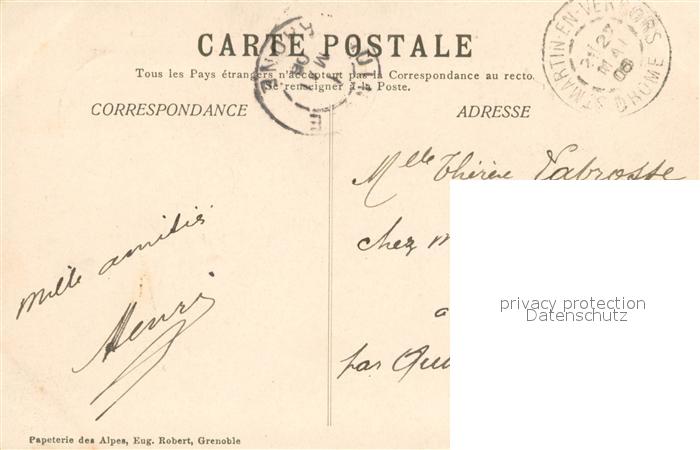 CARTE POSTALE
Tous les Pays étrangers n'acceptent pas la Correspondance au recto.
Se renseigner à la Poste.
CORRESPONDANCE
ADRESSE
ST MARTIN-EN-VERCORS
27
MAI
DROME
Mlle Thérèse Labrosse
chez
a
par
Mille amitiés
Henri
privacy protection
Datenschutz
Papeterie des Alpes, Eug. Robert, Grenoble